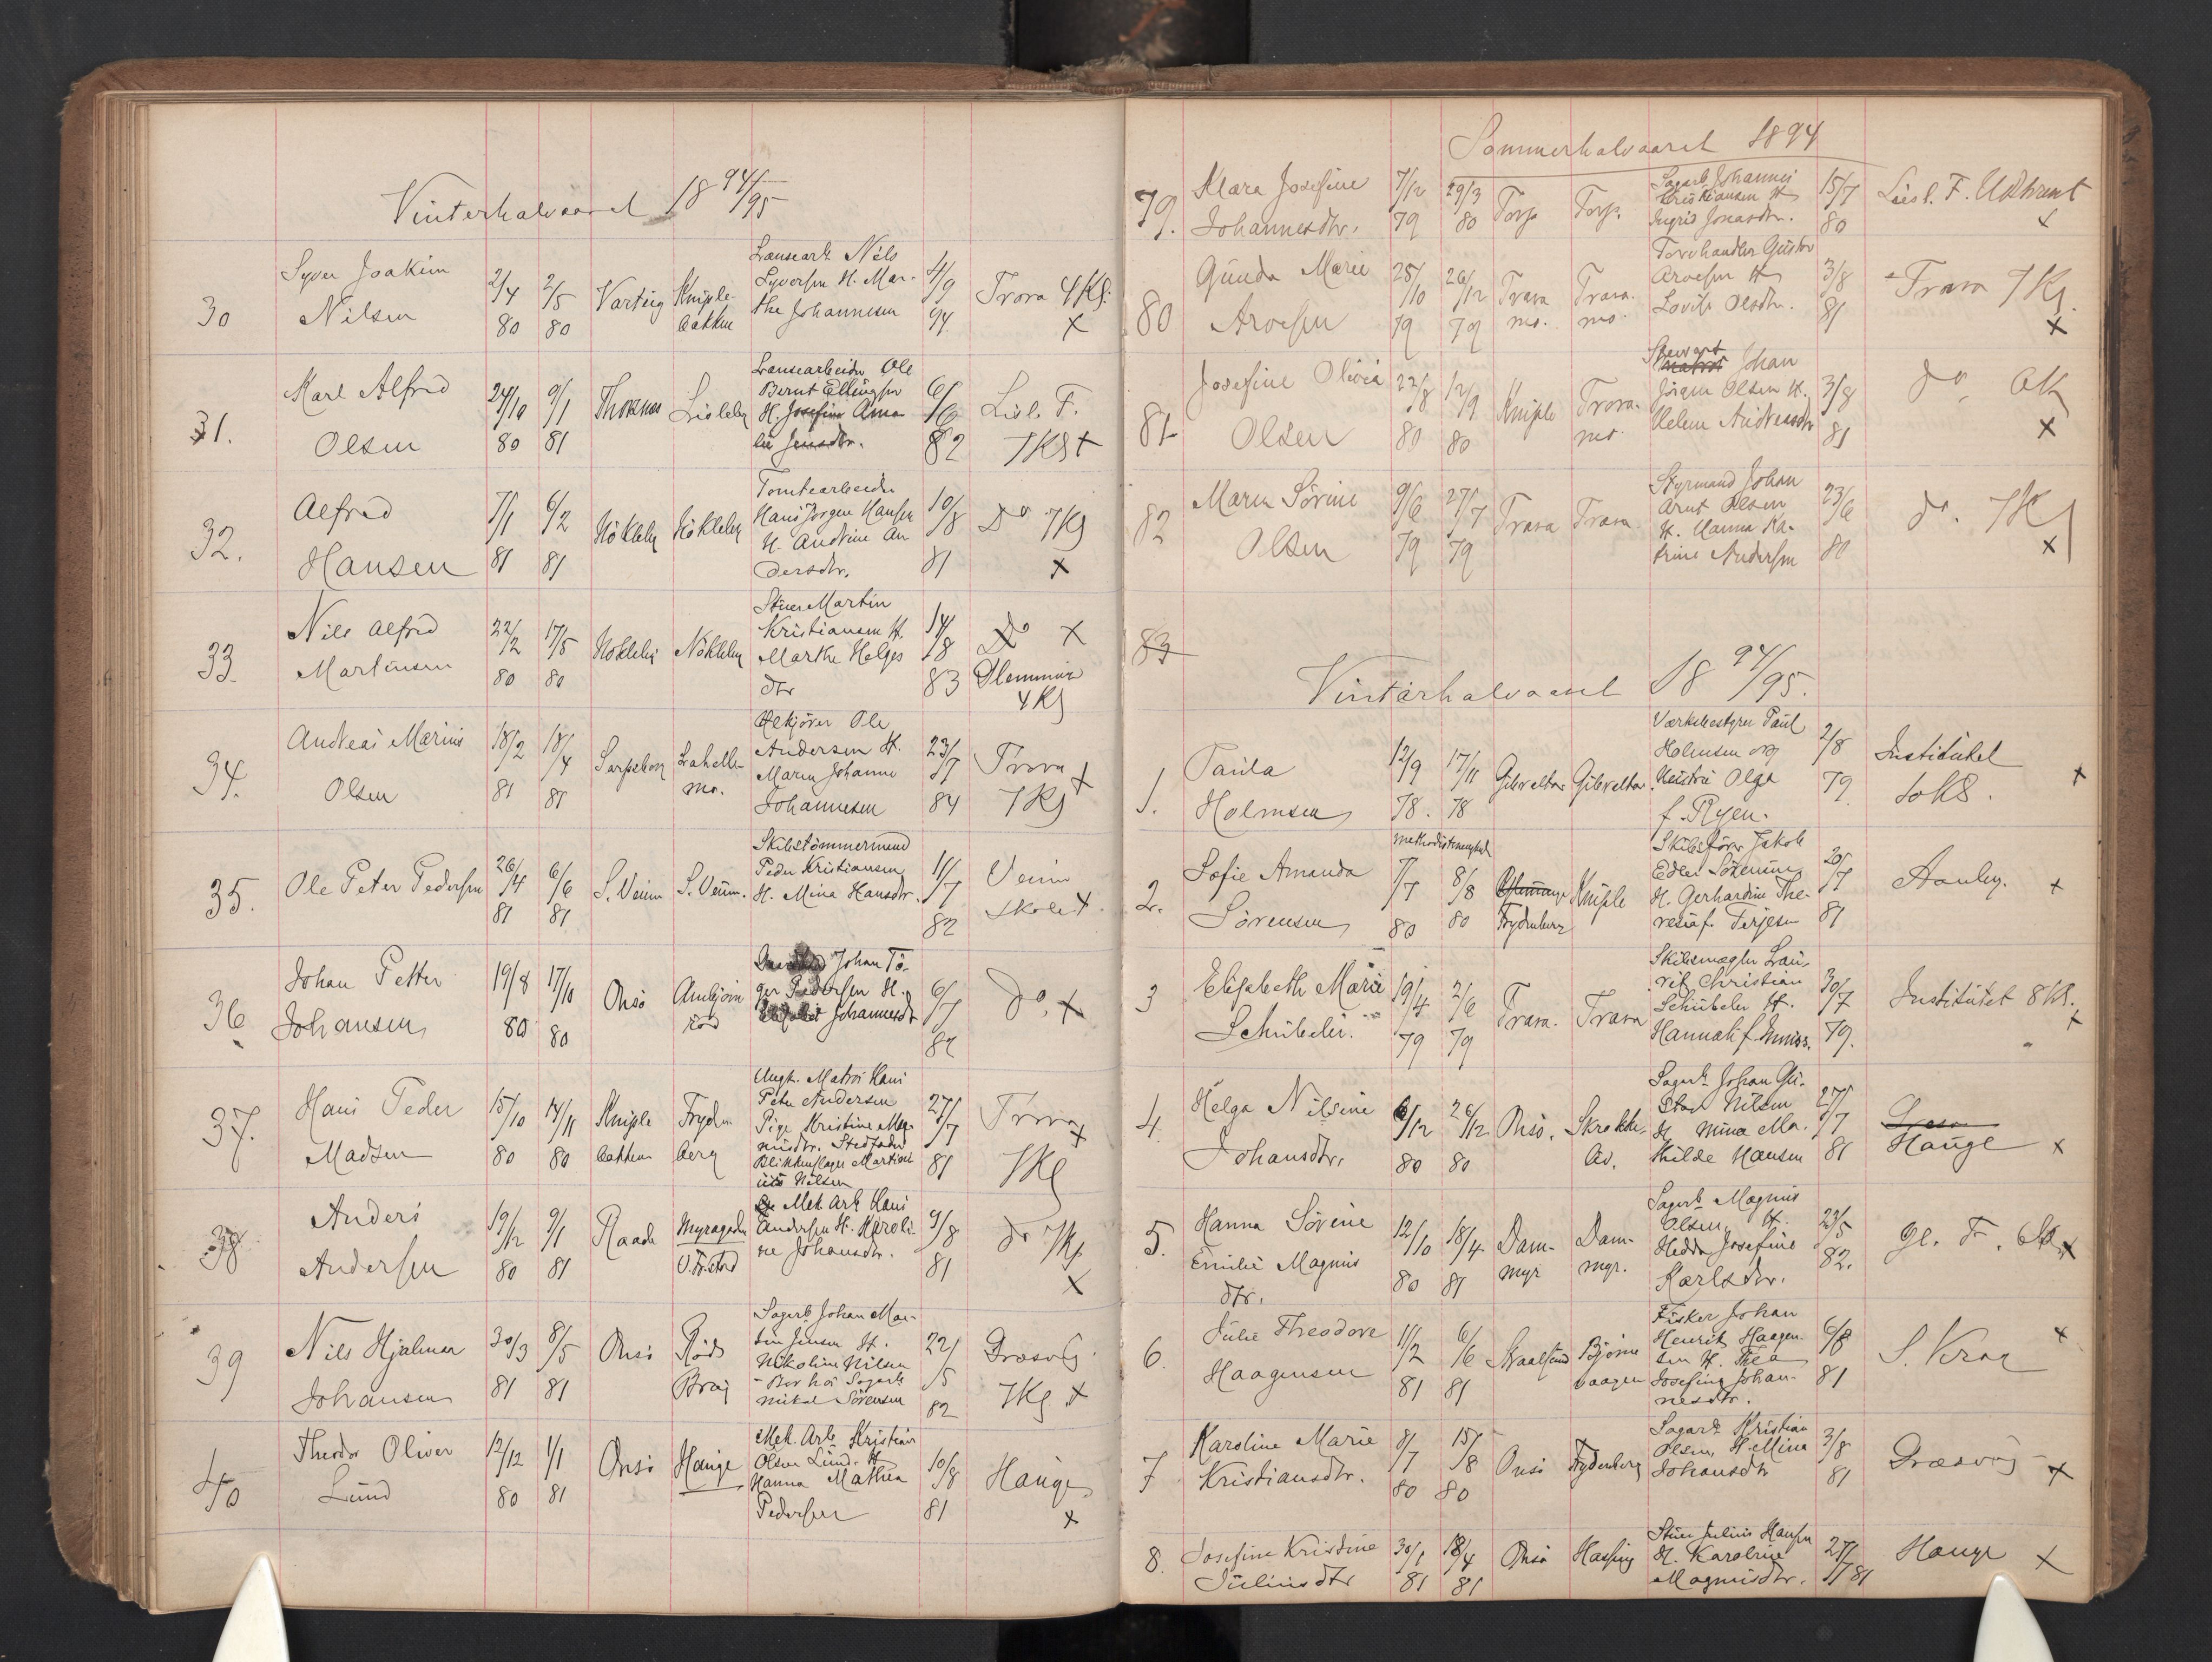 Vinterhalvaaret 18 94/95
30
Syver Joakim
Nilsen
2/4
80
2/5
80
Varteig
Kniple-
bakken
Lansearb. Nils
Syversen H. Mar-
the Johannesen
4/9
94
Trara 4 Kl.
x
31.
Karl Alfred
Olsen
24/10
80
9/1
81
Lisleby
Lansearbeider Ole
Bernt Ellingsen
H. Josefine Ama-
lie Jensdtr.
6/6
82
Lisl. F.
7 Kl x
32.
Alfred
Hansen
7/1
81
6/2
81
Nökleby
Nökleby
Tomtearbeider
Hans Jörgen Hansen
H. Andrine An
dersdtr.
10/8
81
Do 7 Kl
x
33.
Nils Alfred
Martinsen
22/2
80
17/5
80
Nökleby
Nökleby
Stuer Martin
Kristiansen H.
Marthe Helges
dtr
14/8
83
Do x
Glemminge
4 Kl
34.
Andreas Marius
Olsen
18/2
81
18/4
81
Sarpsborg
Lahelle-
mo.
Ole
Andersen H.
Maren Johanne
Johannesen
23/7
84
Trara x
7 Kl
35.
Ole Peter Pedersen
26/4
81
6/6
81
S. Veum
S. Veum.
Skibstömmermand
Peder Kristiansen
H. Mina Hansdtr.
11/7
82
Veum
Skole x
36
Johan Petter
Johansen
19/8
80
17/10
80
Onsö
Ambjörn
röd
Johan Tö-
ger Pedersen H.
Johannesdt
6/7
82
do. x
37.
Hans Peder
Madsen
15/10
80
14/11
80
Kniple
bakken
Fryden
berg
Ungk. Matros Hans
Peter Andersen
Pige Kristine Mag-
nusdtr. Stedfader
Blikkenslager Martini
us Nilsen
27/7
81
Trara x
7 Kl
38
Anders
Andersen
19/12
80
9/1
81
Raade
Myragaden
V. Fr.stad
Mek Arb Hans
Andersen H. Karoli-
ne Johansdtr.
9/8
81
do 7 Kl
x
39
Nils Hjalmar
Johansen
30/3
81
8/5
81
Onsö
Röds
Brag
Sagarb Johan Mar-
tin Jensen H.
Nikoline Nilsen
- Bor hos Sagarb
Mikal Sörensen
22/5
82
Græsvig
7 Kl. x
40
Theodor Oliver
Lund
12/12
80
1/1
81
Onsö
Hauge
Mek. Arb Kristian
Olsen Lund. H
Hanna Mathea
Pedersen
10/8
81
Hauge
x
Sommerhalvaaret 1894
79.
Klara Josefine
Johannesdtr.
7/12
79
29/3
80
Torp
Torp.
Sagarb Johannes
Kristiansen H
Ingrid Jonasdtr.
15/7
80
Lisl. F.
x
80
Gunda Marie
Arvesen
25/10
79
26/12
79
Trara
mo.
Trara.
mo.
Torvhandler Gustav
Arvesen H
Lovise Olsdtr.
3/8
81
Trara 7 Kl.
x
81
Josefine Olivia
Olsen
22/8
80
12/9
80
Kniple
Trara.
mo.
Stewart
Johan
Jörgen Olsen H.
Helene Andreasdtr
3/8
81
do
x
82
Maren Sörine
Olsen
9/6
79
27/7
79
Trara
Trara.
Styrmand Johan
Arnt Olsen
H. Hanna Ka-
trine Andersen
23/6
80
do. 7 Kl
x
83
Vinterhalvaaret 18 94/95.
1.
Paula
Holmsen
12/9
78.
17/11
78
Gibraltar
Gibraltar.
Værksbestyrer Paul
Holmsen og
Hustru Olga
f. Ryen.
2/8
79
Institutet
x
2.
Sofie Amanda
Sörensen
methodistmenighed
7/7
80
8/8
80
Glemminge
Frydenberg
Kniple
Skibsförer Jakob
Edler Sörensen
H. Gerhardine The-
resia f. Terjesen
20/7
81
Aaleby.
x
3
Elisabeth Marie
Schübeler.
19/4
79
2/6
79
Trara.
Trara
Skibsmægler Lau-
rit Christian
Schübeler H.
Hannah f.
30/7
79.
Institutet 8 Kl.
x
4.
Helga Nilsine
Johansdtr.
6/12
80
26/12
80
Onsö.
Skrakke-
Sagarb. Johan Gu-
stav Nilsen
H. Mina Ma-
thilde Hansen
27/7
81
Hauge x
5.
Hanna Sörine
Emilie Magnus
dtr.
12/10
80
18/4
81
Dam-
myr
Dam-
myr.
Sagarb Magnus
Olsen H.
Hedda Josefine
Karlsdtr.
23/5
82.
Gl. F.
x
6.
Julie Theodora
Haagensen
11/2
81
6/6
81
Straalsund
Björne
vaagen
Fisker Johan
Henrik Haagen-
sen H. Thea
Josefine Johan-
nesdtr.
6/8
81
S. Krag
x
7
Karoline Marie
Kristiansdtr.
8/7
80
15/8
80
Onsö
Frydenberg
Sagarb. Kristian
Olsen H. Mina
Johansdtr
3/8
81
Græsvig
x
8.
Josefine Kristine
Juliusdtr
30/1
81
18/4
81
Onsö
Hassing
Stuer Julius Hansen
H. Karoline
Magnusdtr.
27/7 81
Hauge x